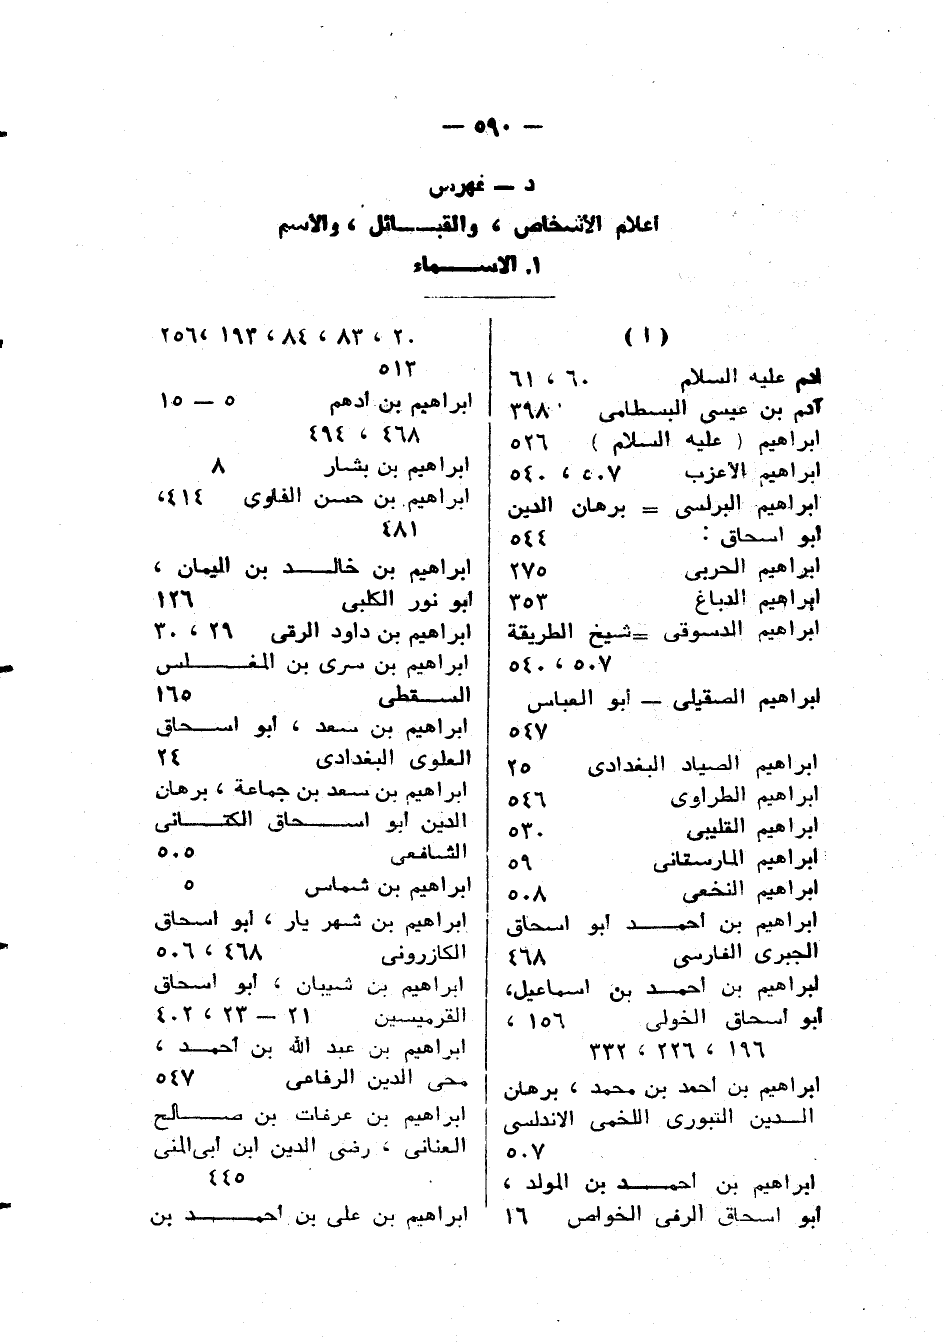 — ٥٩٠ —
د — فهرس
أعلام الأشخاص ، والقبائل ، والأسم
١. الأسماء
( ا )
آدم عليه السلام ٦٠ ، ٦١
آدم بن عيسى البسطامى ٣٩٨
ابراهيم ( عليه السلام ) ٥٢٦
ابراهيم الأعزب ٤٠٧ ، ٥٤٠
ابراهيم البرلسى = برهان الدين
أبو اسحاق : ٥٤٤
ابراهيم الحربى ٢٧٥
ابراهيم الدباغ ٣٥٣
ابراهيم الدسوقى = شيخ الطريقة
٥٠٧ ، ٥٤٠
ابراهيم الصقيلى — أبو العباس
٥٤٧
ابراهيم الصياد البغدادى ٢٥
ابراهيم الطراوى ٥٤٦
ابراهيم القليبى ٥٣٠
ابراهيم المارستانى ٥٩
ابراهيم النخعى ٥٠٨
ابراهيم بن أحمد أبو اسحاق
الجبرى الفارسى ٤٦٨
ابراهيم بن أحمد بن اسماعيل،
أبو أسحاق الخولى ١٥٦ ،
١٩٦ ، ٢٢٦ ، ٣٣٢
ابراهيم بن أحمد بن محمد ، برهان
الدين التبورى اللخمى الاندلسى
٥٠٧
ابراهيم بن أحمد بن المولد ،
أبو اسحاق الرقى الخواص ١٦
٢٠ ، ٨٣ ، ٨٤ ، ١٩٣ ،٢٥٦
٥١٣
ابراهيم بن أدهم ٥ — ١٥
٤٦٨ ، ٤٩٤
ابراهيم بن بشار ٨
ابراهيم بن حسن الفاوى ٤١٤،
٤٨١
ابراهيم بن خالد بن اليمان ،
أبو نور الكلبى ١٢٦
ابراهيم بن داود الرقى ٢٩ ، ٣٠
ابراهيم بن سرى بن المغلس
السقطى ١٦٥
ابراهيم بن سعد ، أبو اسحاق
العلوى البغدادى ٢٤
ابراهيم بن سعد بن جماعة ، برهان
الدين أبو اسحاق الكتانى
الشافعى ٥٠٥
ابراهيم بن شماس ٥
ابراهيم بن شهر يار ، أبو اسحاق
الكازرونى ٤٦٨ ، ٥٠٦
ابراهيم بن شيبان ، أبو اسحاق
القرميسين ٢١ — ٢٣ ، ٤٠٢
ابراهيم بن عبد الله بن أحمد ،
محى الدين الرفاعى ٥٤٧
ابراهيم بن عرفات بن صالح
العنانى ، رضى الدين ابن أبى المنى
٤٤٥
ابراهيم بن على بن أحمد بن